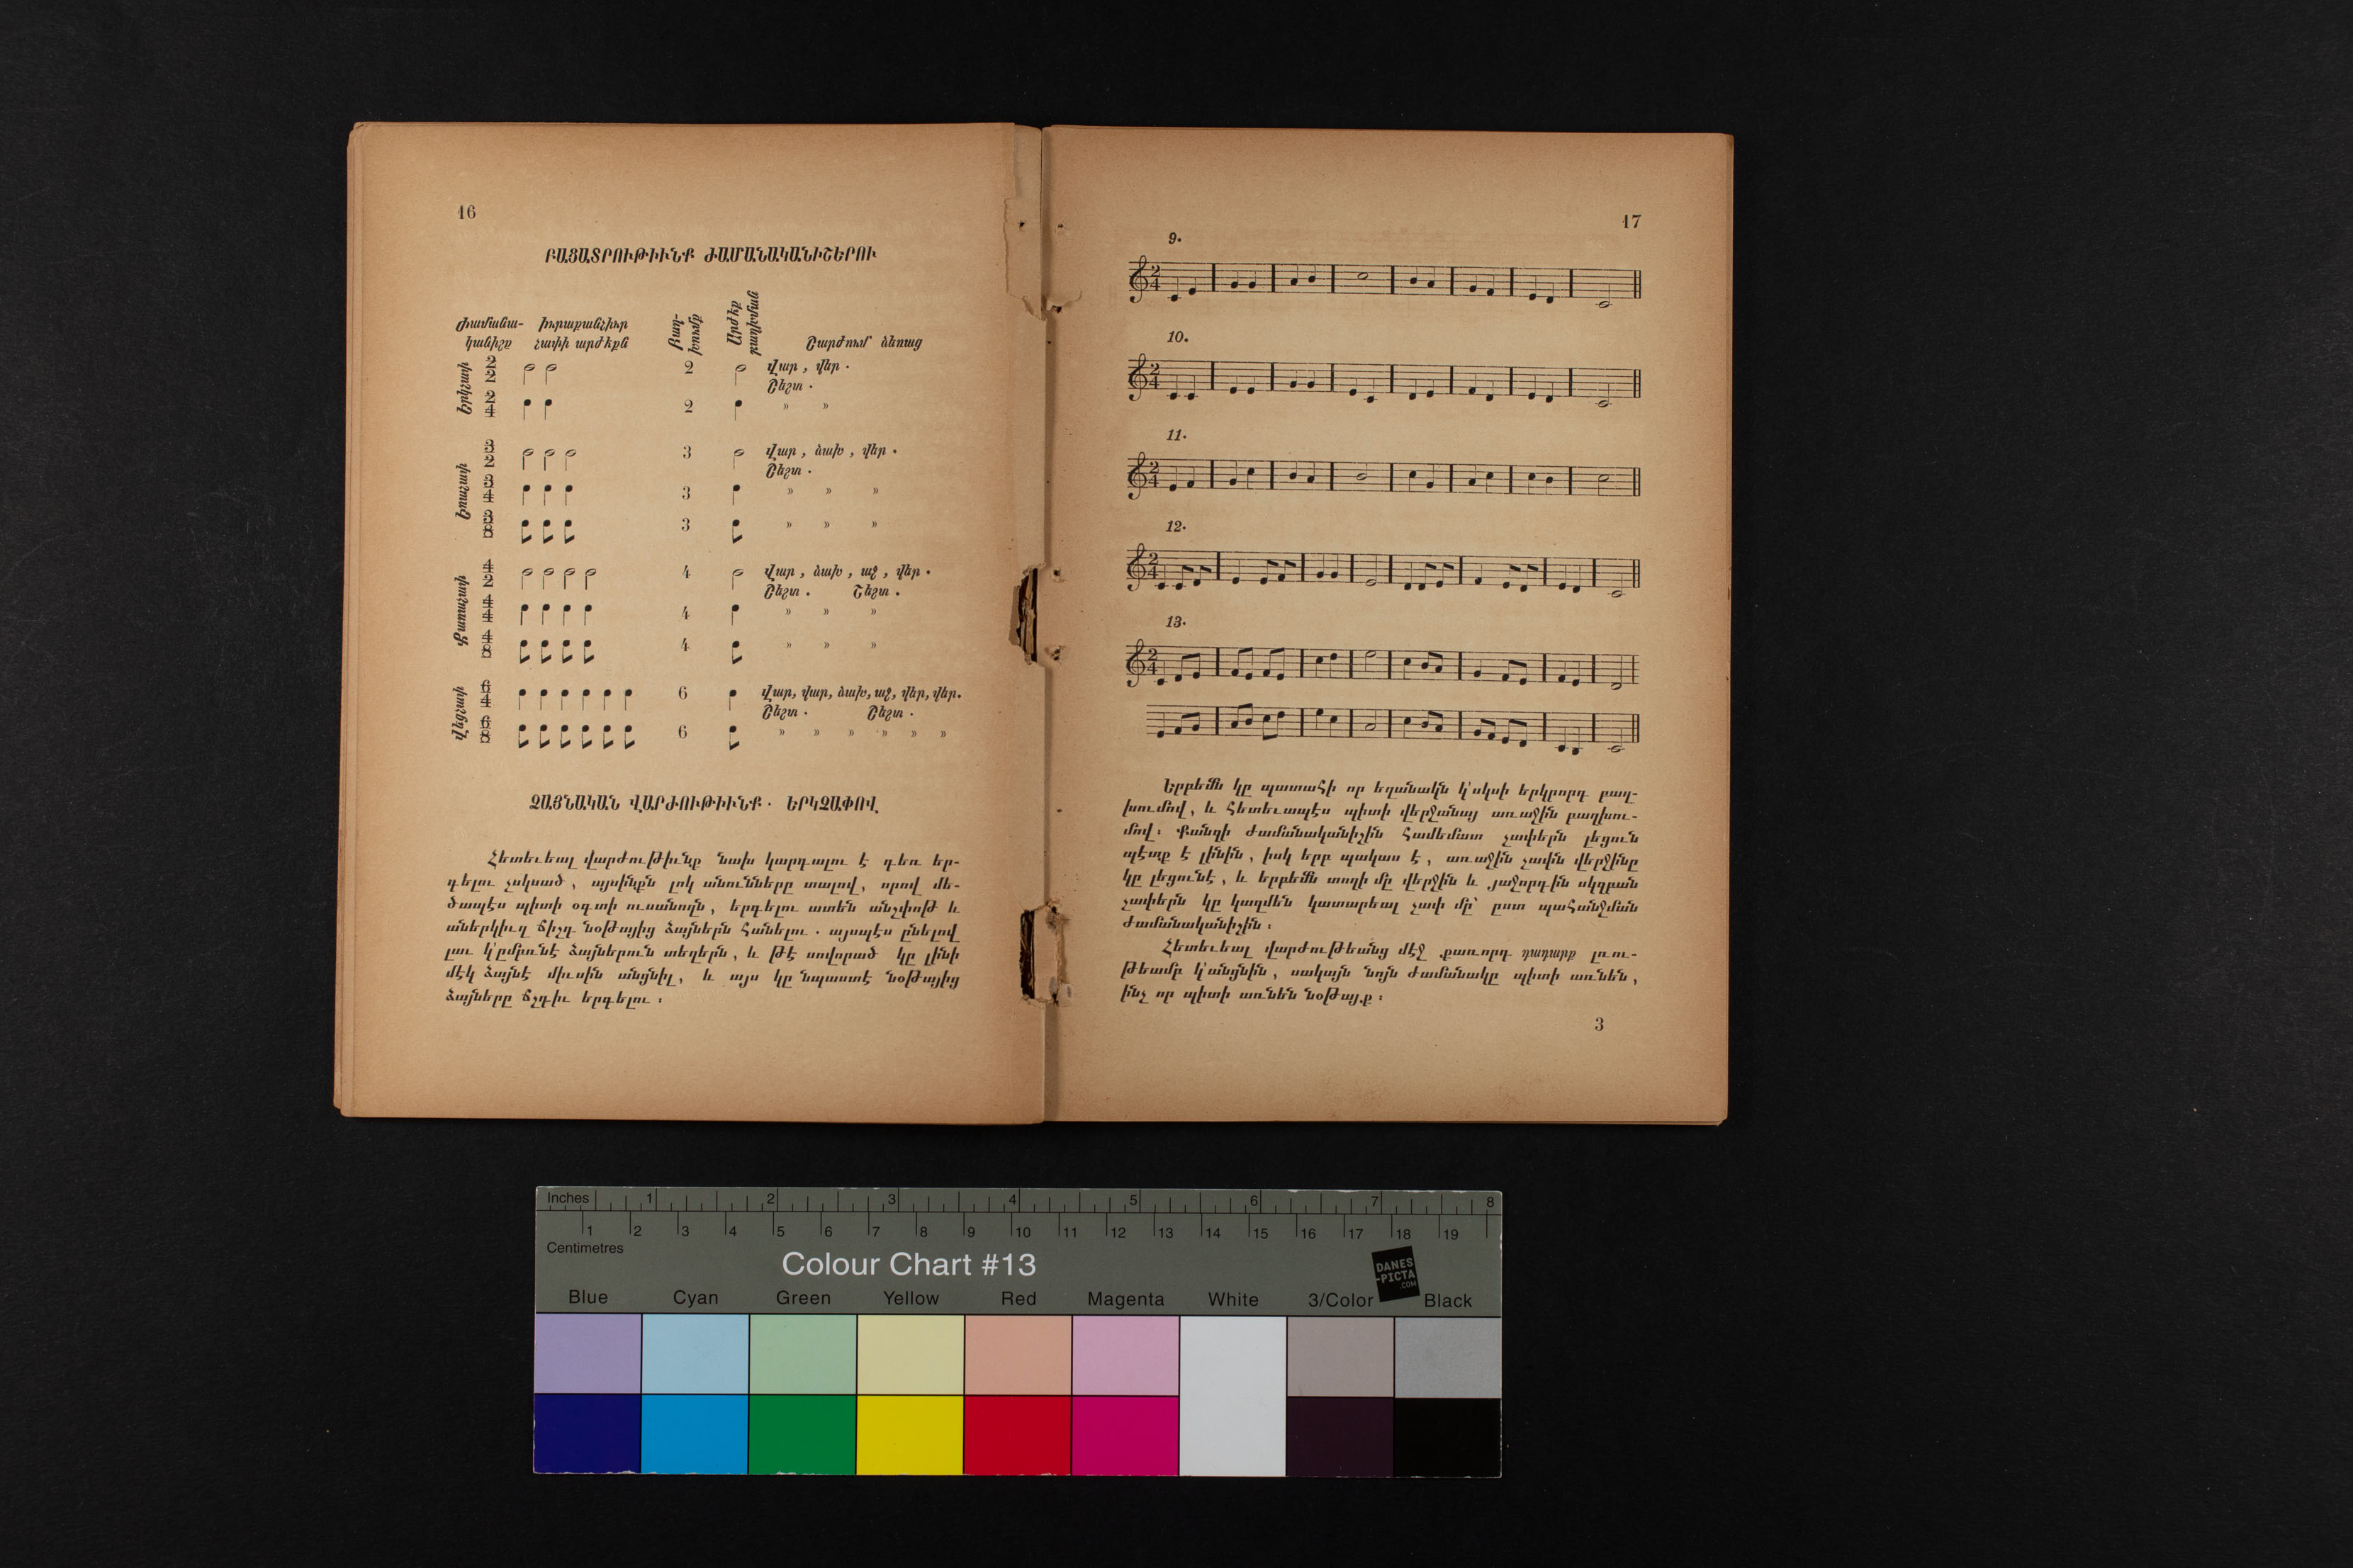 16
ԲԱՑԱՏՐՈՒԹԻՒՆՔ ԺԱՄԱՆԱԿԱՆԻՇԵՐՈՒ
Ժամանա-
կանիշք
իւրաքանչիւր
չափի արժէքն
Բաղ-
խումք
Արժէք
բաղխման
Շարժում ձեռաց
Երկչափ
2
2
2
Վար, վեր.
Շեշտ.
2
4
2
» »
Եռաչափ
3
2
3
Վար, ձախ, վեր.
Շեշտ.
3
4
3
» » »
3
8
3
» » »
Քառաչափ
4
2
4
Վար, ձախ, աջ, վեր.
Շեշտ. Շեշտ.
4
4
4
» » »
4
8
4
» » »
Վեցչափ
6
4
6
Վար, վար, ձախ, աջ, վեր, վեր.
Շեշտ. Շեշտ.
6
8
6
» » » » » »
ՁԱՅՆԱԿԱՆ ՎԱՐԺՈՒԹԻՒՆՔ. ԵՐԿՉԱՓՈՎ
Հետեւեալ վարժութիւնք նախ կարդալու է դեռ եր-
գելու չսկսած, այսինքն լոկ անունները տալով, որով մե-
ծապէս պիտի օգտի ուսանողն, երգելու ատեն անշփոթ և
աներկիւղ ճիշդ նօթայից ձայներն հանելու. այսպէս ընելով
լաւ կ'ըմբռնէ ձայներուն տեղերն, և թէ սովորած կը լինի
մէկ ձայնէ միւսին անցնիլ, և այս կը նպաստէ նօթայից
ձայները ճշդիւ երգելու։
17
9.
2
4
10.
2
4
11.
2
4
12.
2
4
13.
2
4
Երբեմն կը պատահի որ եղանակն կ'սկսի երկրորդ բաղ-
խումով, և հետեւապէս պիտի վերջանայ առաջին բաղխու-
մով։ Քանզի ժամանականիշին համեմատ չափերն լեցուն
պէտք է լինին, իսկ երբ պակաս է, առաջին չափն վերջինը
կը լեցունէ, և երբեմն տողի մը վերջին և յաջորդին սկզբան
չափերն կը կազմեն կատարեալ չափ մը՝ ըստ պահանջման
ժամանականիշին։
Հետեւեալ վարժութեանց մէջ քառորդ դադարք լռու-
թեամբ կ'անցնին, սակայն նոյն ժամանակը պիտի առնեն,
ինչ որ պիտի առնեն նօթայք։
3
Inches 1 2 3 4 5 6 7 8
1 2 3 4 5 6 7 8 9 10 11 12 13 14 15 16 17 18 19
Centimetres
Colour Chart #13
DANES
-PICTA
.COM
Blue Cyan Green Yellow Red Magenta White 3/Color Black